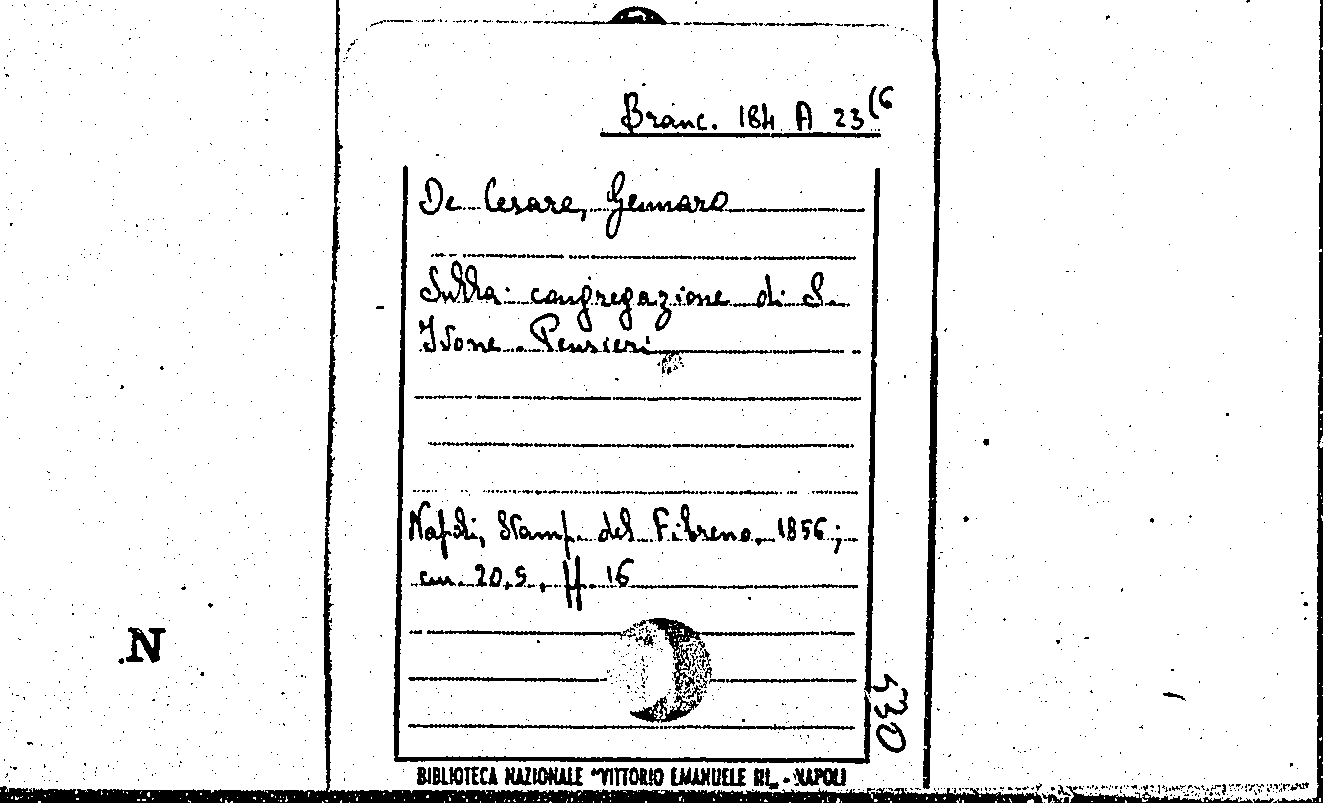 Branc. 184 A 23(6
De Cesare, Gennaro
Sulla congregazione di S.
Ivone. Pensieri
Napoli, Stamp. del Fibreno, 1856;
cm. 20,5, pp. 16
N
530
BIBLIOTECA NAZIONALE "VITTORIO EMANUELE III„ - NAPOLI